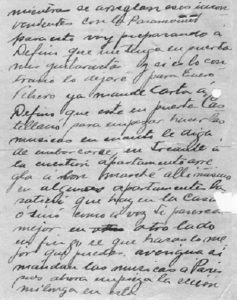 mientras se arreglan esos incon
venientes con la Paramount
para esto voy preparando a
Delfino que me tenga en puerta
mis guitarristas y si es lo con
trario lo dejaré para Enero
Febrero ya mandé carta a
Delfino que esté en puerta Cas
tellano para empezar hacer las
musicas en cuanto le diga
de entrar corte, en
la cuestion apartamento arre
gla a ton allí mismo
en algunos apartamentos ba
ratito que hay en la Casa
o sinó como a voz te parezca
mejor en otro lado
en fin yo se que harás lo me
jor que puedas, averigua si
mandan las musicas a Pare
ra ahora empieza la cción
milonga en esta